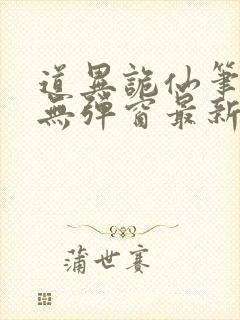 道異詭仙筆
無彈窗最新
蒲世賽